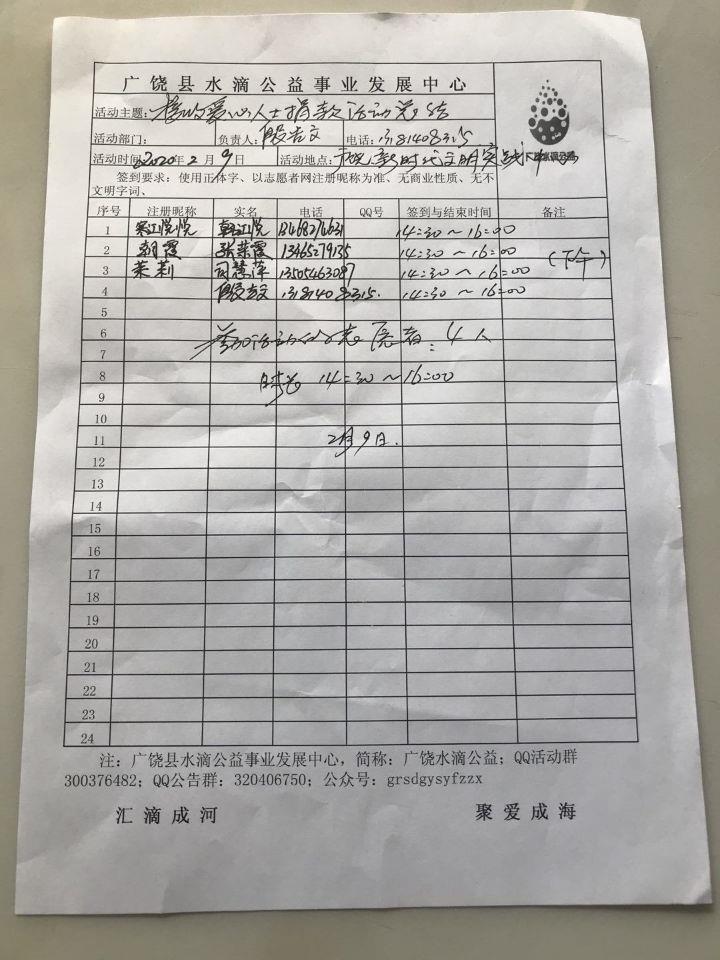 广饶县水滴公益事业发展中心
活动主题:接收爱心人士捐款活动总结
活动部门: 负责人: 段吉文 电话: 13181408315
活动时间: 2020年2月9日 活动地点: 新时代文明实践中心
签到要求：使用正体字、以志愿者网注册昵称为准、无商业性质、无不
文明字词、
序号 注册昵称 实名 电话 QQ号 签到与结束时间 备注
1 14:30～16:00
2 朝霞 张荣霞 13465279135 14:30～16:00 (下午)
3 茉莉 司慧萍 13505463087 14:30～16:00
4 段吉文 13181408315. 14:30～16:00
5
6 参加活动的志愿者: 4人
7
8 时长 14:30～16:00
9
10
11 2月9日.
12
13
14
15
16
17
18
19
20
21
22
23
24
注：广饶县水滴公益事业发展中心，简称：广饶水滴公益；QQ活动群
300376482；QQ公告群：320406750；公众号：grsdgysyfzzx
汇滴成河 聚爱成海